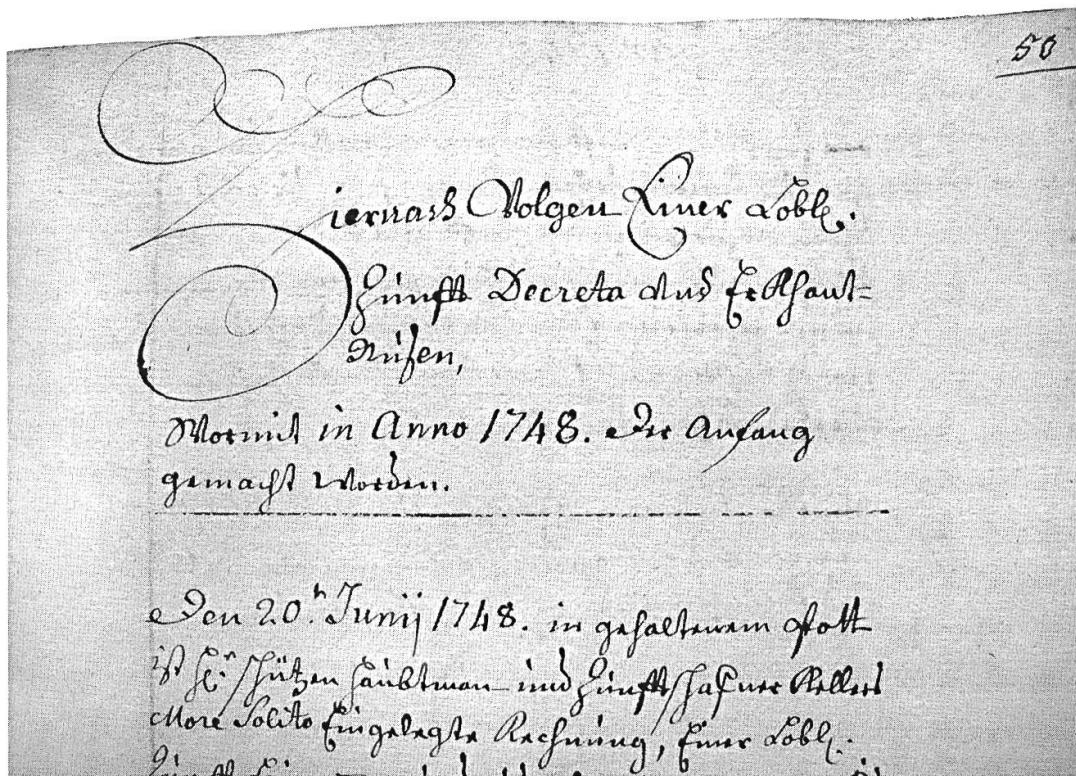 50
Hiernach Volgen Einer Lobl.
Zunfft Decreta Und Erkhant-
Nußen,
Wormit in Anno 1748. Der Anfang
gemacht worden.
Den 20.t Junij 1748. in gehaltenem Pott
ist Hr. Schützen Haubtman und Zunfftschafner Kellers
More Solito Eingelegte Rechnung, Einer Lobl.